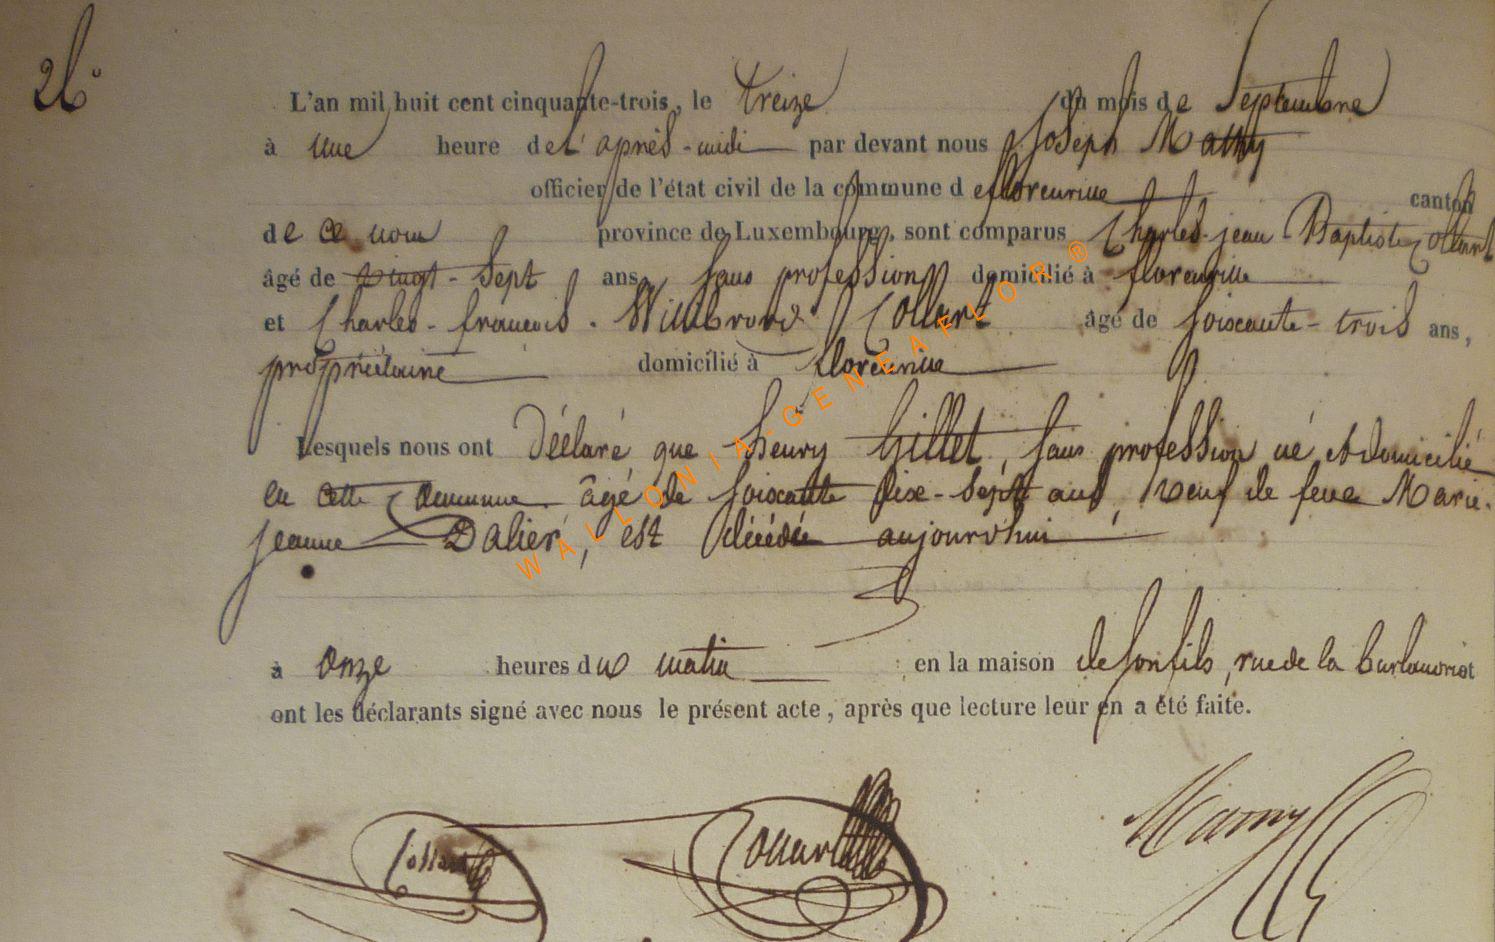 26°
L'an mil huit cent cinquante-trois, le treize du mois de Septembre
à une heure de l'après-midi par devant nous Joseph Mathy
officier de l'état civil de la commune de florenville canton
de ce nom province de Luxembourg, sont comparus Charles-jean-Baptiste Collart
âgé de vingt-Sept ans, sans profession domicilié à florenville
et Charles-françois-Willibrord Collart âgé de soixante-trois ans,
propriétaire domicilié à florenville
Lesquels nous ont Déclaré que henry Gillet, sans profession né et domicilié
en cette Commune âgé de soixante dix-sept ans, veuf de feue Marie-
jeanne Dalier, est décédé aujourd'hui
à onze heures du matin en la maison de son fils, rue de la
ont les déclarants signé avec nous le présent acte, après que lecture leur en a été faite.
Collart Collart
WALLONIA-GENEAFLOR®